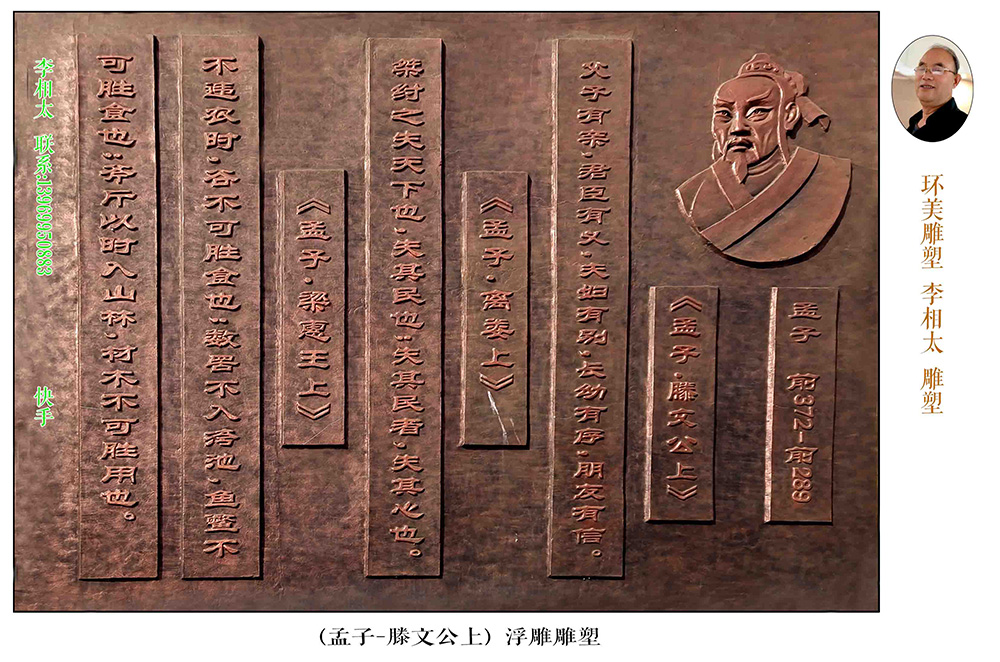 孟子 前372-前289
《孟子·滕文公上》
父子有亲，君臣有义，夫妇有别，长幼有序，朋友有信。
《孟子·离娄上》
桀纣之失天下也，失其民也；失其民者，失其心也。
《孟子·梁惠王上》
不违农时，谷不可胜食也；数罟不入洿池，鱼鳖不
可胜食也；斧斤以时入山林，材木不可胜用也。
李相太 联系:13969950883 快手
环美雕塑 李相太 雕塑
(孟子-滕文公上) 浮雕雕塑